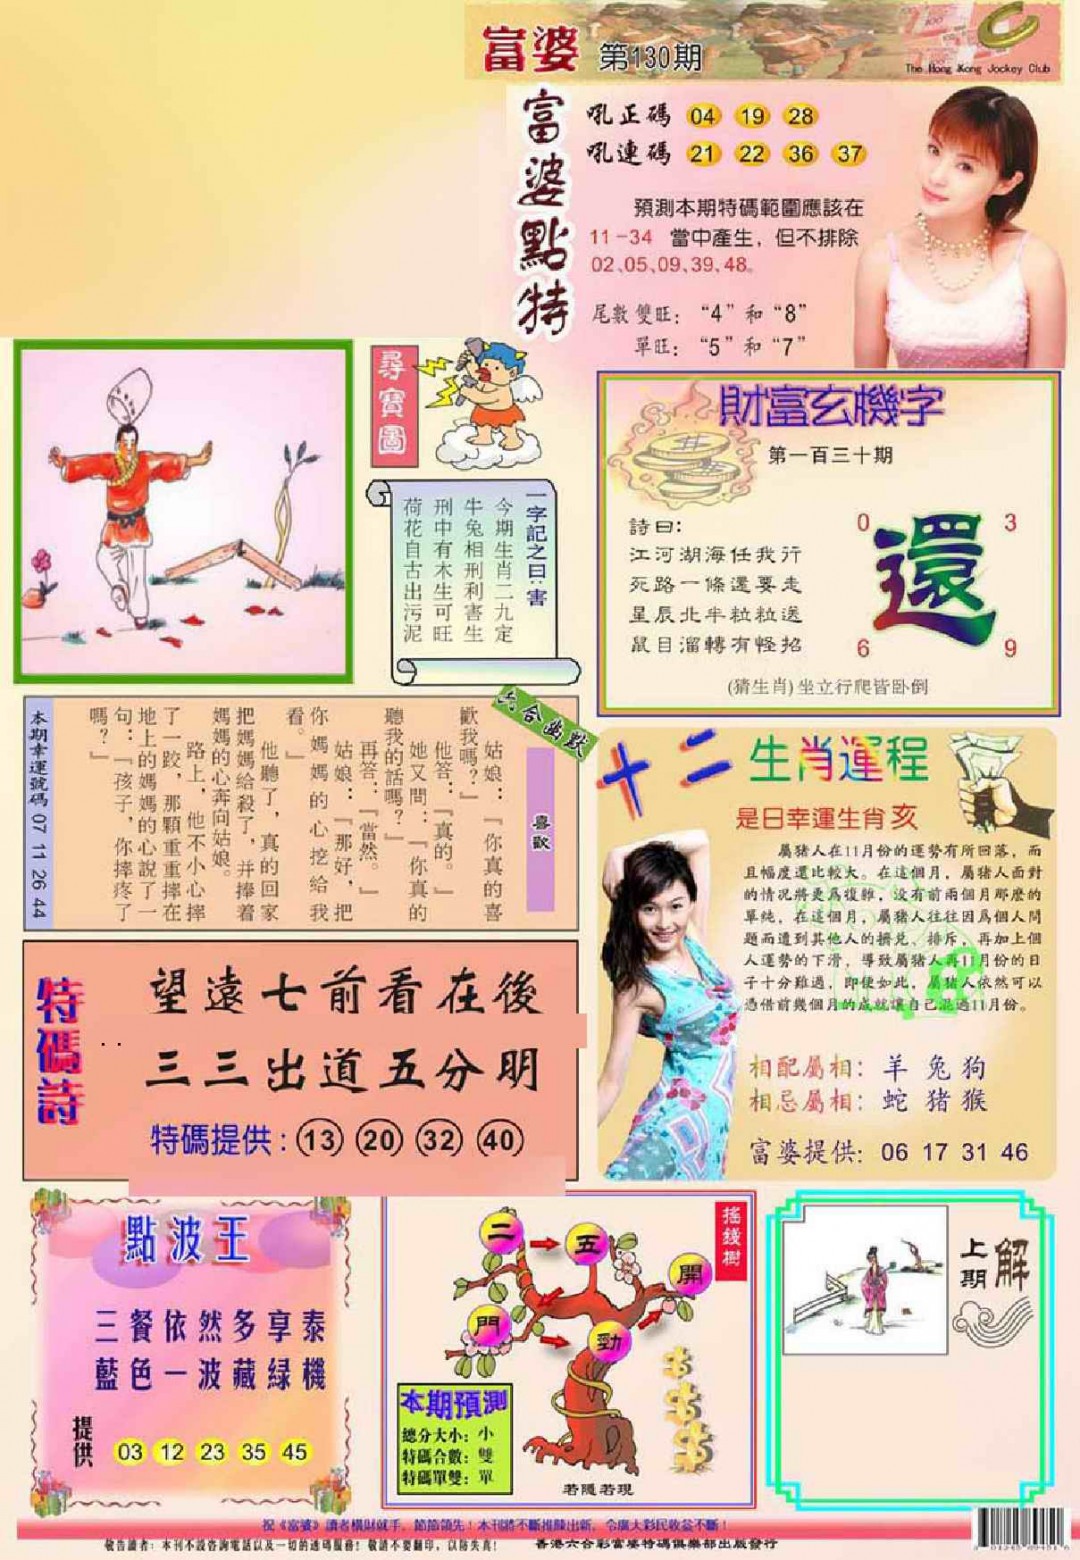 富婆 第130期
The Hong Kong Jockey Club
富婆點特
吼正碼 04 19 28
吼連碼 21 22 36 37
預測本期特碼範圍應該在
11-34 當中產生，但不排除
02、05、09、39、48。
尾數雙旺：“4”和“8”
單旺：“5”和“7”
尋寶圖
一字記之曰：害
今期生肖二九定
牛兔相刑利害生
刑中有木生可旺
荷花自古出污泥
財富玄機字
第一百三十期
詩曰：
江河湖海任我行
死路一條還要走
星辰北半粒粒送
鼠目溜轉有怪招
還
0 3
6 9
(猜生肖)坐立行爬皆卧倒
六合幽默
喜歡
姑娘：『你真的喜
歡我嗎？』
他答：『真的。』
她又問：『你真的
聽我的話嗎？』
再答：『當然。』
姑娘：『那好，把
你媽媽的心挖給我
看。』
他聽了，真的回家
把媽媽給殺了，并捧着
媽媽的心奔向姑娘。
路上，他不小心摔
了一跤，那顆重重摔在
地上的媽媽的心說了一
句：『孩子，你摔疼了
嗎？』
本期幸運號碼 07 11 26 44
十二生肖運程
是日幸運生肖亥
屬猪人在11月份的運勢有所回落，而
且幅度還比較大。在這個月，屬猪人面對
的情况將更爲復雜，没有前兩個月那麽的
單純，在這個月，屬猪人往往因爲個人問
題而遭到其他人的擠兑、排斥，再加上個
人運勢的下滑，導致屬猪人再11月份的日
子十分難過，即便如此，屬猪人依然可以
憑借前幾個月的成就讓自己混過11月份。
相配屬相：羊 兔 狗
相忌屬相：蛇 猪 猴
富婆提供：06 17 31 46
特碼詩
望遠七前看在後
三三出道五分明
特碼提供：13 20 32 40
點波王
三餐依然多享泰
藍色一波藏緑機
提供 03 12 23 35 45
摇錢樹
二 五 開
門 勁
本期預測
總分大小：小
特碼合數：雙
特碼單雙：單
若隱若現
上期解
祝《富婆》讀者橫財就手，節節領先！本刊將不斷推陳出新，令廣大彩民收益不斷！
敬告讀者：本刊不設咨詢電話以及一切的透碼服務！敬請不要翻印，以防失真！
香港六合彩富婆特碼俱樂部出版發行